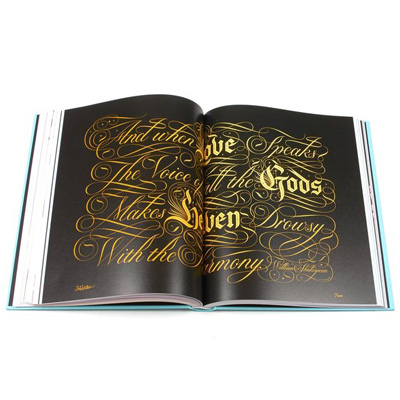 And when Love Speaks,
The Voice of all the Gods
Makes Heaven Drowsy
With the Harmony. William Shakespeare